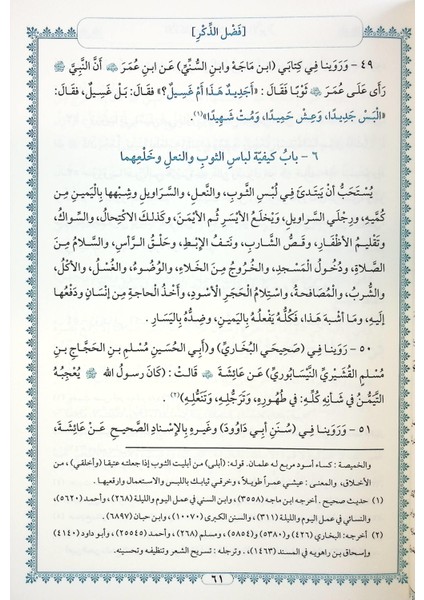 [فَضْل الذِّكْرِ]
٤٩ - وَرَوَينا فِي كِتابَي (ابن مَاجَهْ وابنِ السُّنِّيِّ) عَن ابنِ عُمَرَ ﷺ أَنَّ النَّبِيَّ ﷺ
رَأَى عَلَى عُمَرَ ﷺ ثَوْبًا فَقَالَ : «أَجَدِيدٌ هَذَا أَمْ غَسِيلٌ؟» فَقالَ: بَلْ غَسِيلٌ، فَقالَ:
«الْبَسْ جَدِيدًا، وَعِشْ حَمِيدًا، وَمُتْ شَهِيدًا»(١).
٦ - بابُ كيفيّة لباسِ الثوبِ والنعلِ وخَلْعِهِما
يُسْتَحَبُّ أَنْ يَبْتَدِئَ فِي لُبْسِ الثَّوبِ، والنَّعلِ، والسَّراويلِ وشِبْهِها بِالْيَمينِ مِن
كُمَّيهِ، ورِجْلَي السَّراويلِ، وَيَخْلَعُ الأَيْسَرَ ثُم الأَيْمَنَ، وكَذلكَ الاكتِحالُ، والسِّواكُ،
وتَقْليمُ الأَظْفارِ، وقَصُّ الشَّارِبِ، ونَتفُ الإِبْطِ، وحَلْقُ الرَّأْسِ، والسَّلامُ مِنَ
الصَّلاةِ، ودُخُولُ المَسْجدِ، والخُروجُ مِنَ الخَلاءِ، والوُضُوءُ، والغُسْلُ، والأَكْلُ،
والشُّربُ، والمُصَافحةُ، واسْتِلامُ الحَجَرِ الأَسْودِ، وأَخْذُ الحاجةِ مِن إنْسَانٍ ودَفْعُها
إلَيهِ، ومَا أشْبهَ هَذا، فَكُلُّهُ يَفْعَلُهُ بِاليَمِينِ، وضِدُّهُ بِاليَسَارِ.
٥٠ - رَوَينا فِي (صَحِيحَي البُخَارِيِّ) و(أَبِي الحُسَينِ مُسْلمِ بنِ الحَجَّاجِ بنِ
مُسْلمٍ القُشَيْريِّ النَّيْسَابُوريِّ) عَن عَائِشَةَ ﷺ قَالتْ: (كَانَ رسولُ اللهِ ﷺ يُعْجِبُهُ
التَّيَمُّنُ فِي شَأنِهِ كُلِّهِ: فِي طُهُورِهِ، وَتَرَجُّلِهِ، وَتَنَعُّلِهِ)(٢).
٥١ - وَرَوَينا فِي (سُنَنِ أَبِي دَاوُودَ) وغَيرِهِ بِالإِسْنادِ الصَّحيحِ عَنْ عَائِشَةَ،
والخميصة: كساء أسود مربع له علمان. قوله: (أبلي) من أبليت الثوب إذا جعلته عتيقا (وأخلقي)، من
الأخلاق، والمعنى: عيشي عمراً طويلاً، وخرقي ثيابك باللبس والاستعمال وارقعيها.
(١) حديث صحيح. أخرجه ابن ماجه (٣٥٥٨)، وابن السني في عمل اليوم والليلة (٢٦٨)، وأحمد (٥٦٢٠)،
والنسائي في عمل اليوم والليلة (٣١١)، والسنن الكبرى (١٠٠٧٠)، وابن حبان (٦٨٩٧).
(٢) أخرجه: البخاري (٤٢٦) و(٥٣٨٠) و(٥٨٥٤)، ومسلم (٢٦٨)، وأحمد (٢٥٥٤٥)، وأبو داود (٤١٤٠)
وإسحاق بن راهويه في المسند (١٤٦٣)، . وترجله: تسريح الشعر وتنظيفه وتحسينه.
٦١